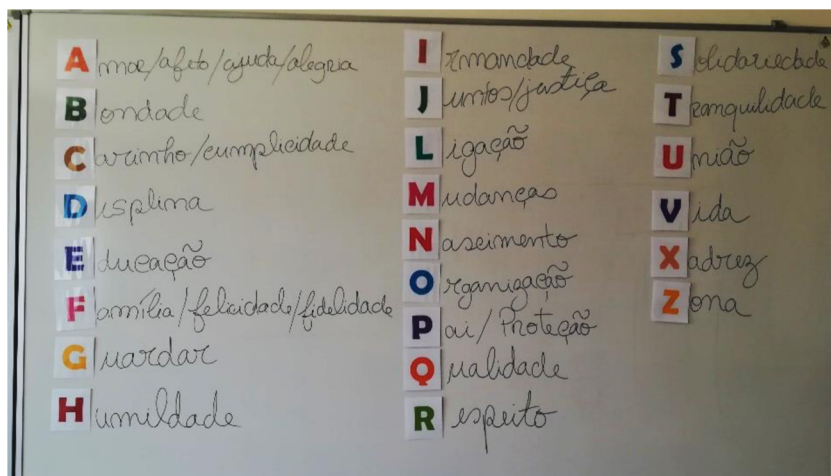 Amor/afeto/ajuda/alegria
Bondade
Carinho/cumplicidade
Displina
Educação
Família/felicidade/fidelidade
Guardar
Humildade
Irmandade
Juntos/justiça
Ligação
Mudanças
Nascimento
Organização
Pai/Proteção
Qualidade
Respeito
Solidariedade
Tranquilidade
União
Vida
Xadrez
Zona